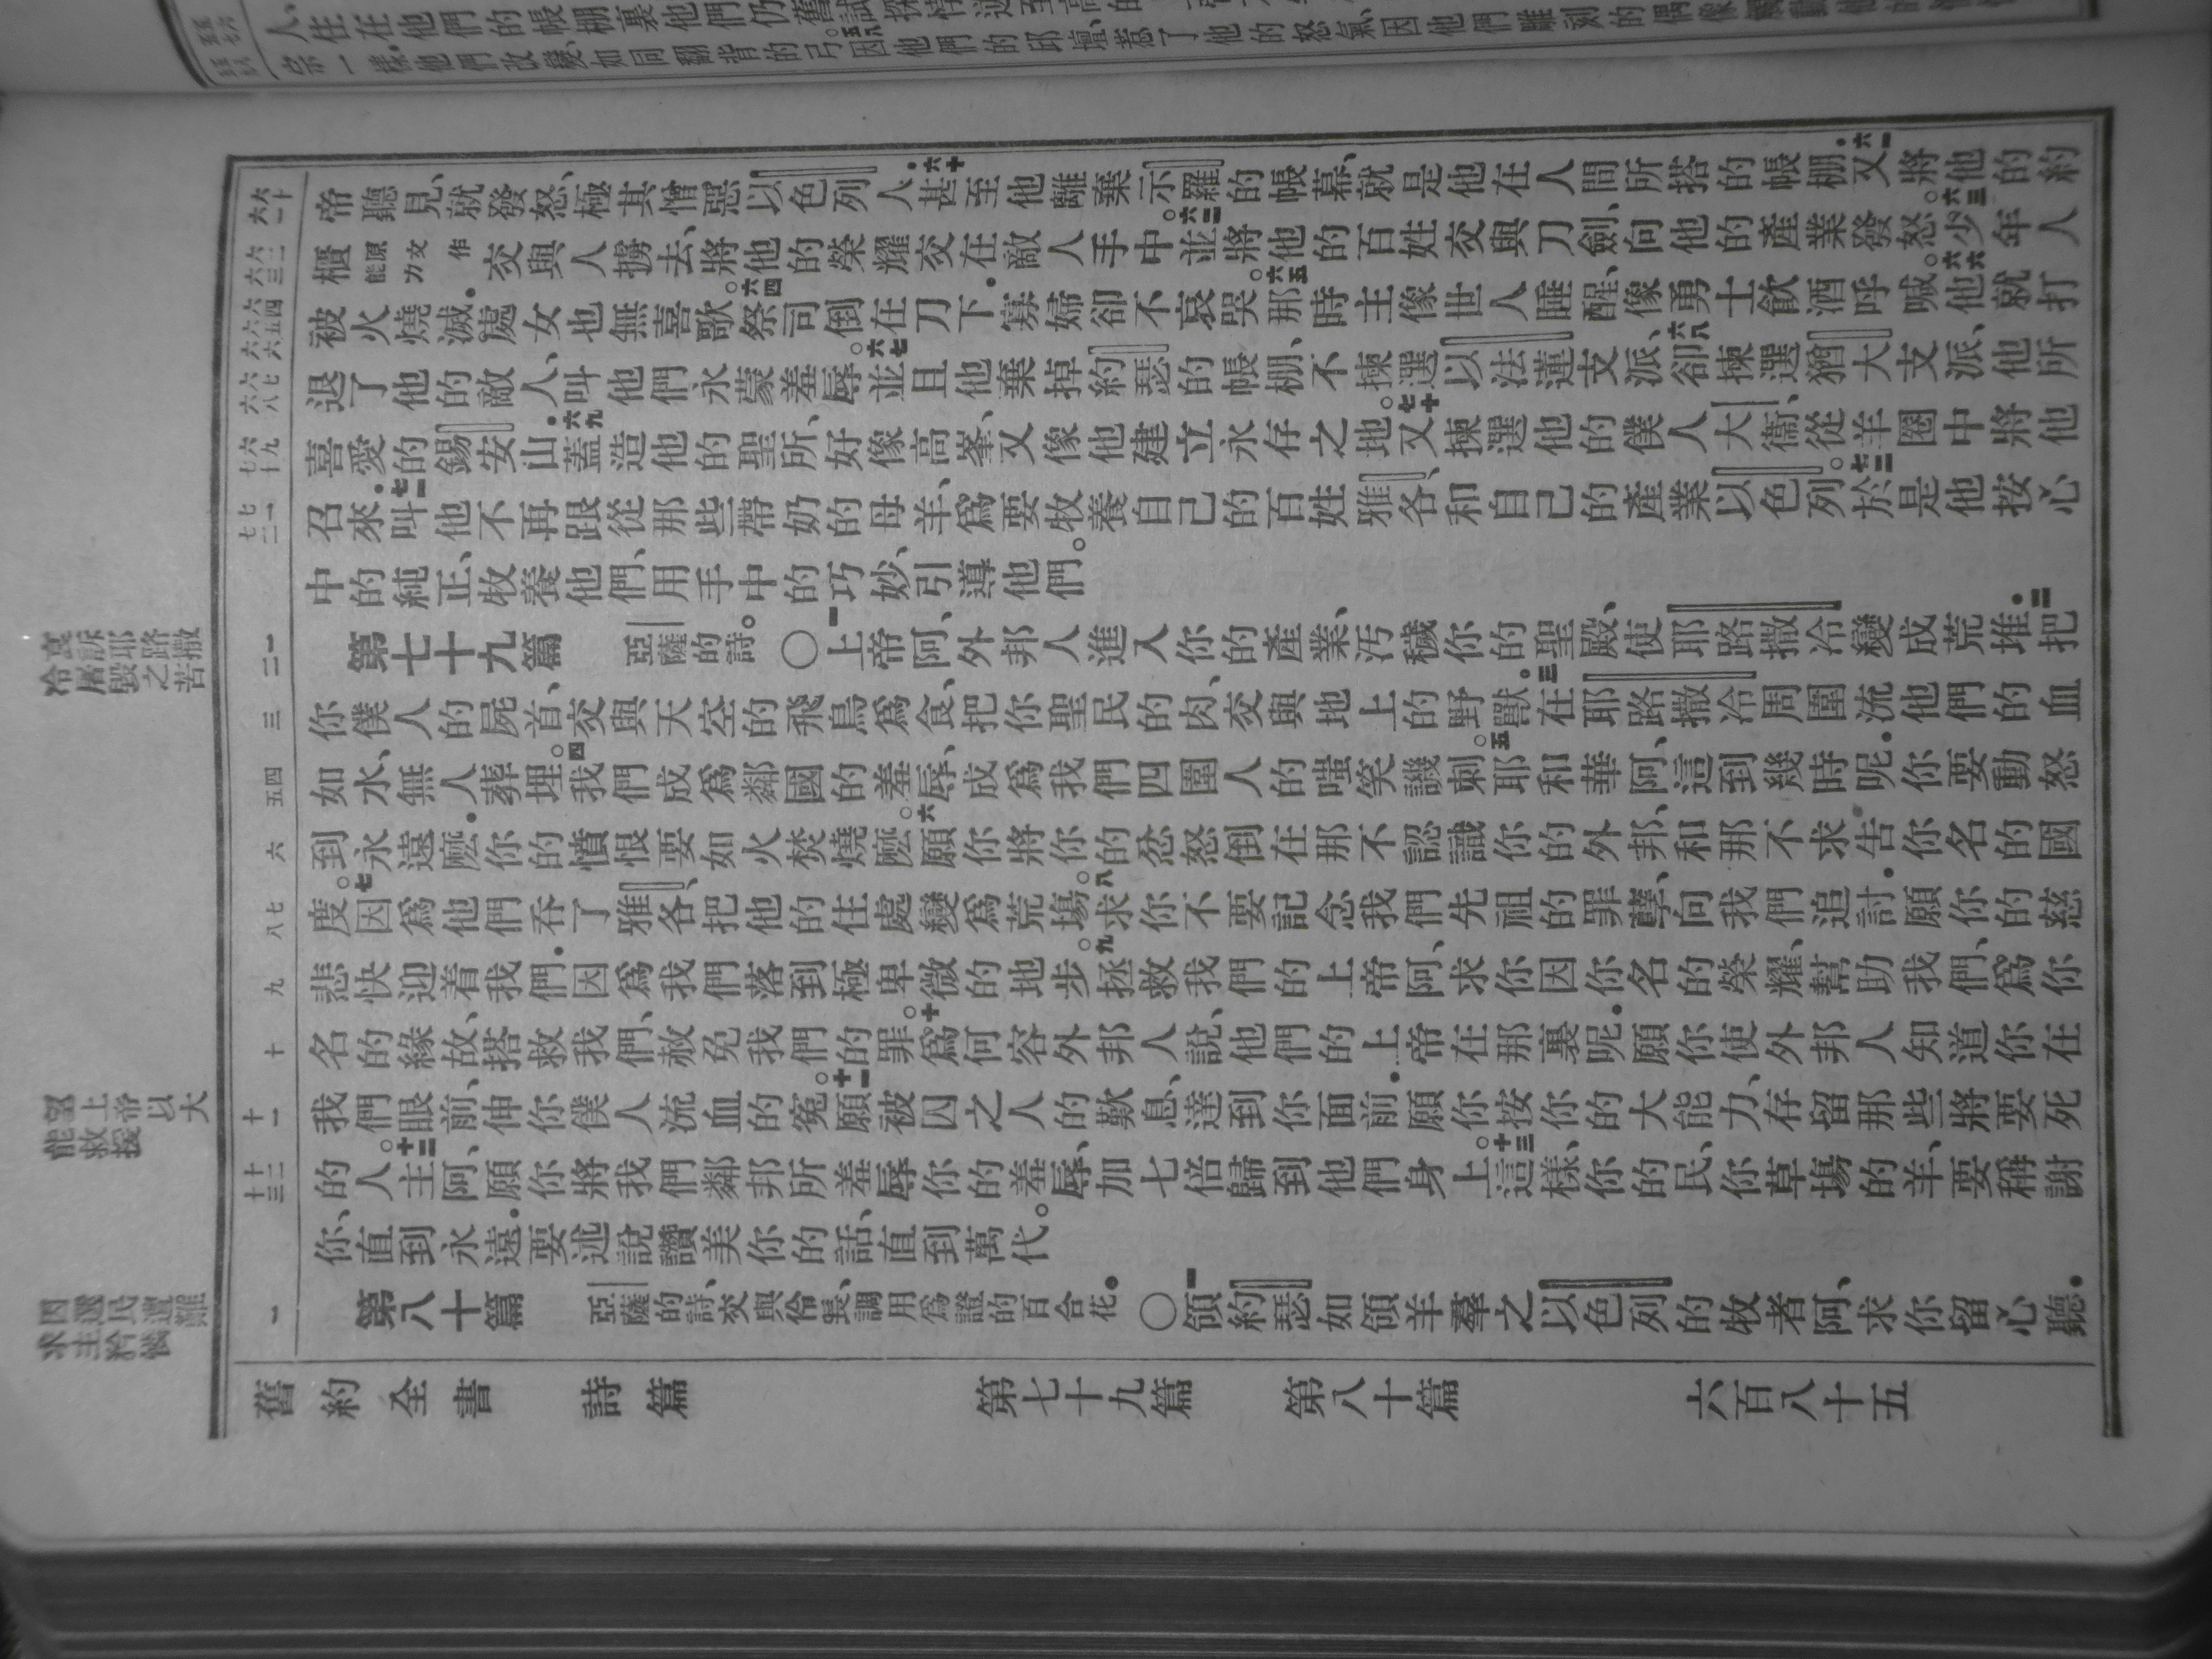 人、住在他們的帳棚裏他們仍舊試探
一樣.他們改變、如同翻背的弓因他們的邱壇、惹了他的怒氣、因他們雕刻的偶像
帝聽見、就發怒、極其憎惡以色列人.六十甚至他離棄示羅的帳幕、就是他在人間所搭的帳棚.六一又將他的約
櫃原文作能力交與人擄去、將他的榮耀交在敵人手中。六二並將他的百姓交與刀劍、向他的產業發怒。六三少年人
被火燒滅.處女也無喜歌。六四祭司倒在刀下.寡婦卻不哀哭。六五那時主像世人睡醒、像勇士飲酒呼喊。六六他就打
退了他的敵人、叫他們永蒙羞辱。六七並且他棄掉約瑟的帳棚、不揀選以法蓮支派、六八卻揀選猶大支派、他所
喜愛的錫安山.六九蓋造他的聖所、好像高峯、又像他建立永存之地。七十又揀選他的僕人大衞、從羊圈中將他
召來.七一叫他不再跟從那些帶奶的母羊、爲要牧養自己的百姓雅各、和自己的產業以色列。七二於是他按心
中的純正、牧養他們、用手中的巧妙、引導他們。
第七十九篇 亞薩的詩。〇一上帝阿、外邦人進入你的產業、汚穢你的聖殿、使耶路撒冷變成荒堆.二把
你僕人的屍首、交與天空的飛鳥爲食、把你聖民的肉、交與地上的野獸.三在耶路撒冷周圍流他們的血
如水、無人葬埋。四我們成爲鄰國的羞辱、成爲我們四圍人的嗤笑譏刺。五耶和華阿、這到幾時呢.你要動怒
到永遠麽.你的憤恨要如火焚燒麽。六願你將你的忿怒倒在那不認識你的外邦、和那不求告你名的國
度。七因爲他們吞了雅各、把他的住處變爲荒塲。八求你不要記念我們先祖的罪孽、向我們追討.願你的慈
悲快迎着我們.因爲我們落到極卑微的地步。九拯救我們的上帝阿、求你因你名的榮耀、幫助我們、爲你
名的緣故、搭救我們、赦免我們的罪。十爲何容外邦人說、他們的上帝在那裏呢.願你使外邦人知道你在
我們眼前、伸你僕人流血的寃。十一願被囚之人的歎息、達到你面前.願你按你的大能力、存留那些將要死
的人。十二主阿、願你將我們鄰邦所羞辱你的羞辱、加七倍歸到他們身上。十三這樣、你的民、你草塲的羊、要稱謝
你、直到永遠.要述說讚美你的話、直到萬代。
第八十篇 亞薩的詩、交與伶長、調用爲證的百合花.〇一領約瑟如領羊羣之以色列的牧者阿、求你留心聽.
舊約全書 詩篇 第七十九篇 第八十篇 六百八十五
哀訴耶路撒
冷屠毀之苦
望上帝以大
能救援
因選民遭難
求主矜憫
六十
六一
六二
六三
六四
六五
六六
六七
六八
六九
七十
七一
七二
一
二
三
四
五
六
七
八
九
十
十一
十二
十三
一